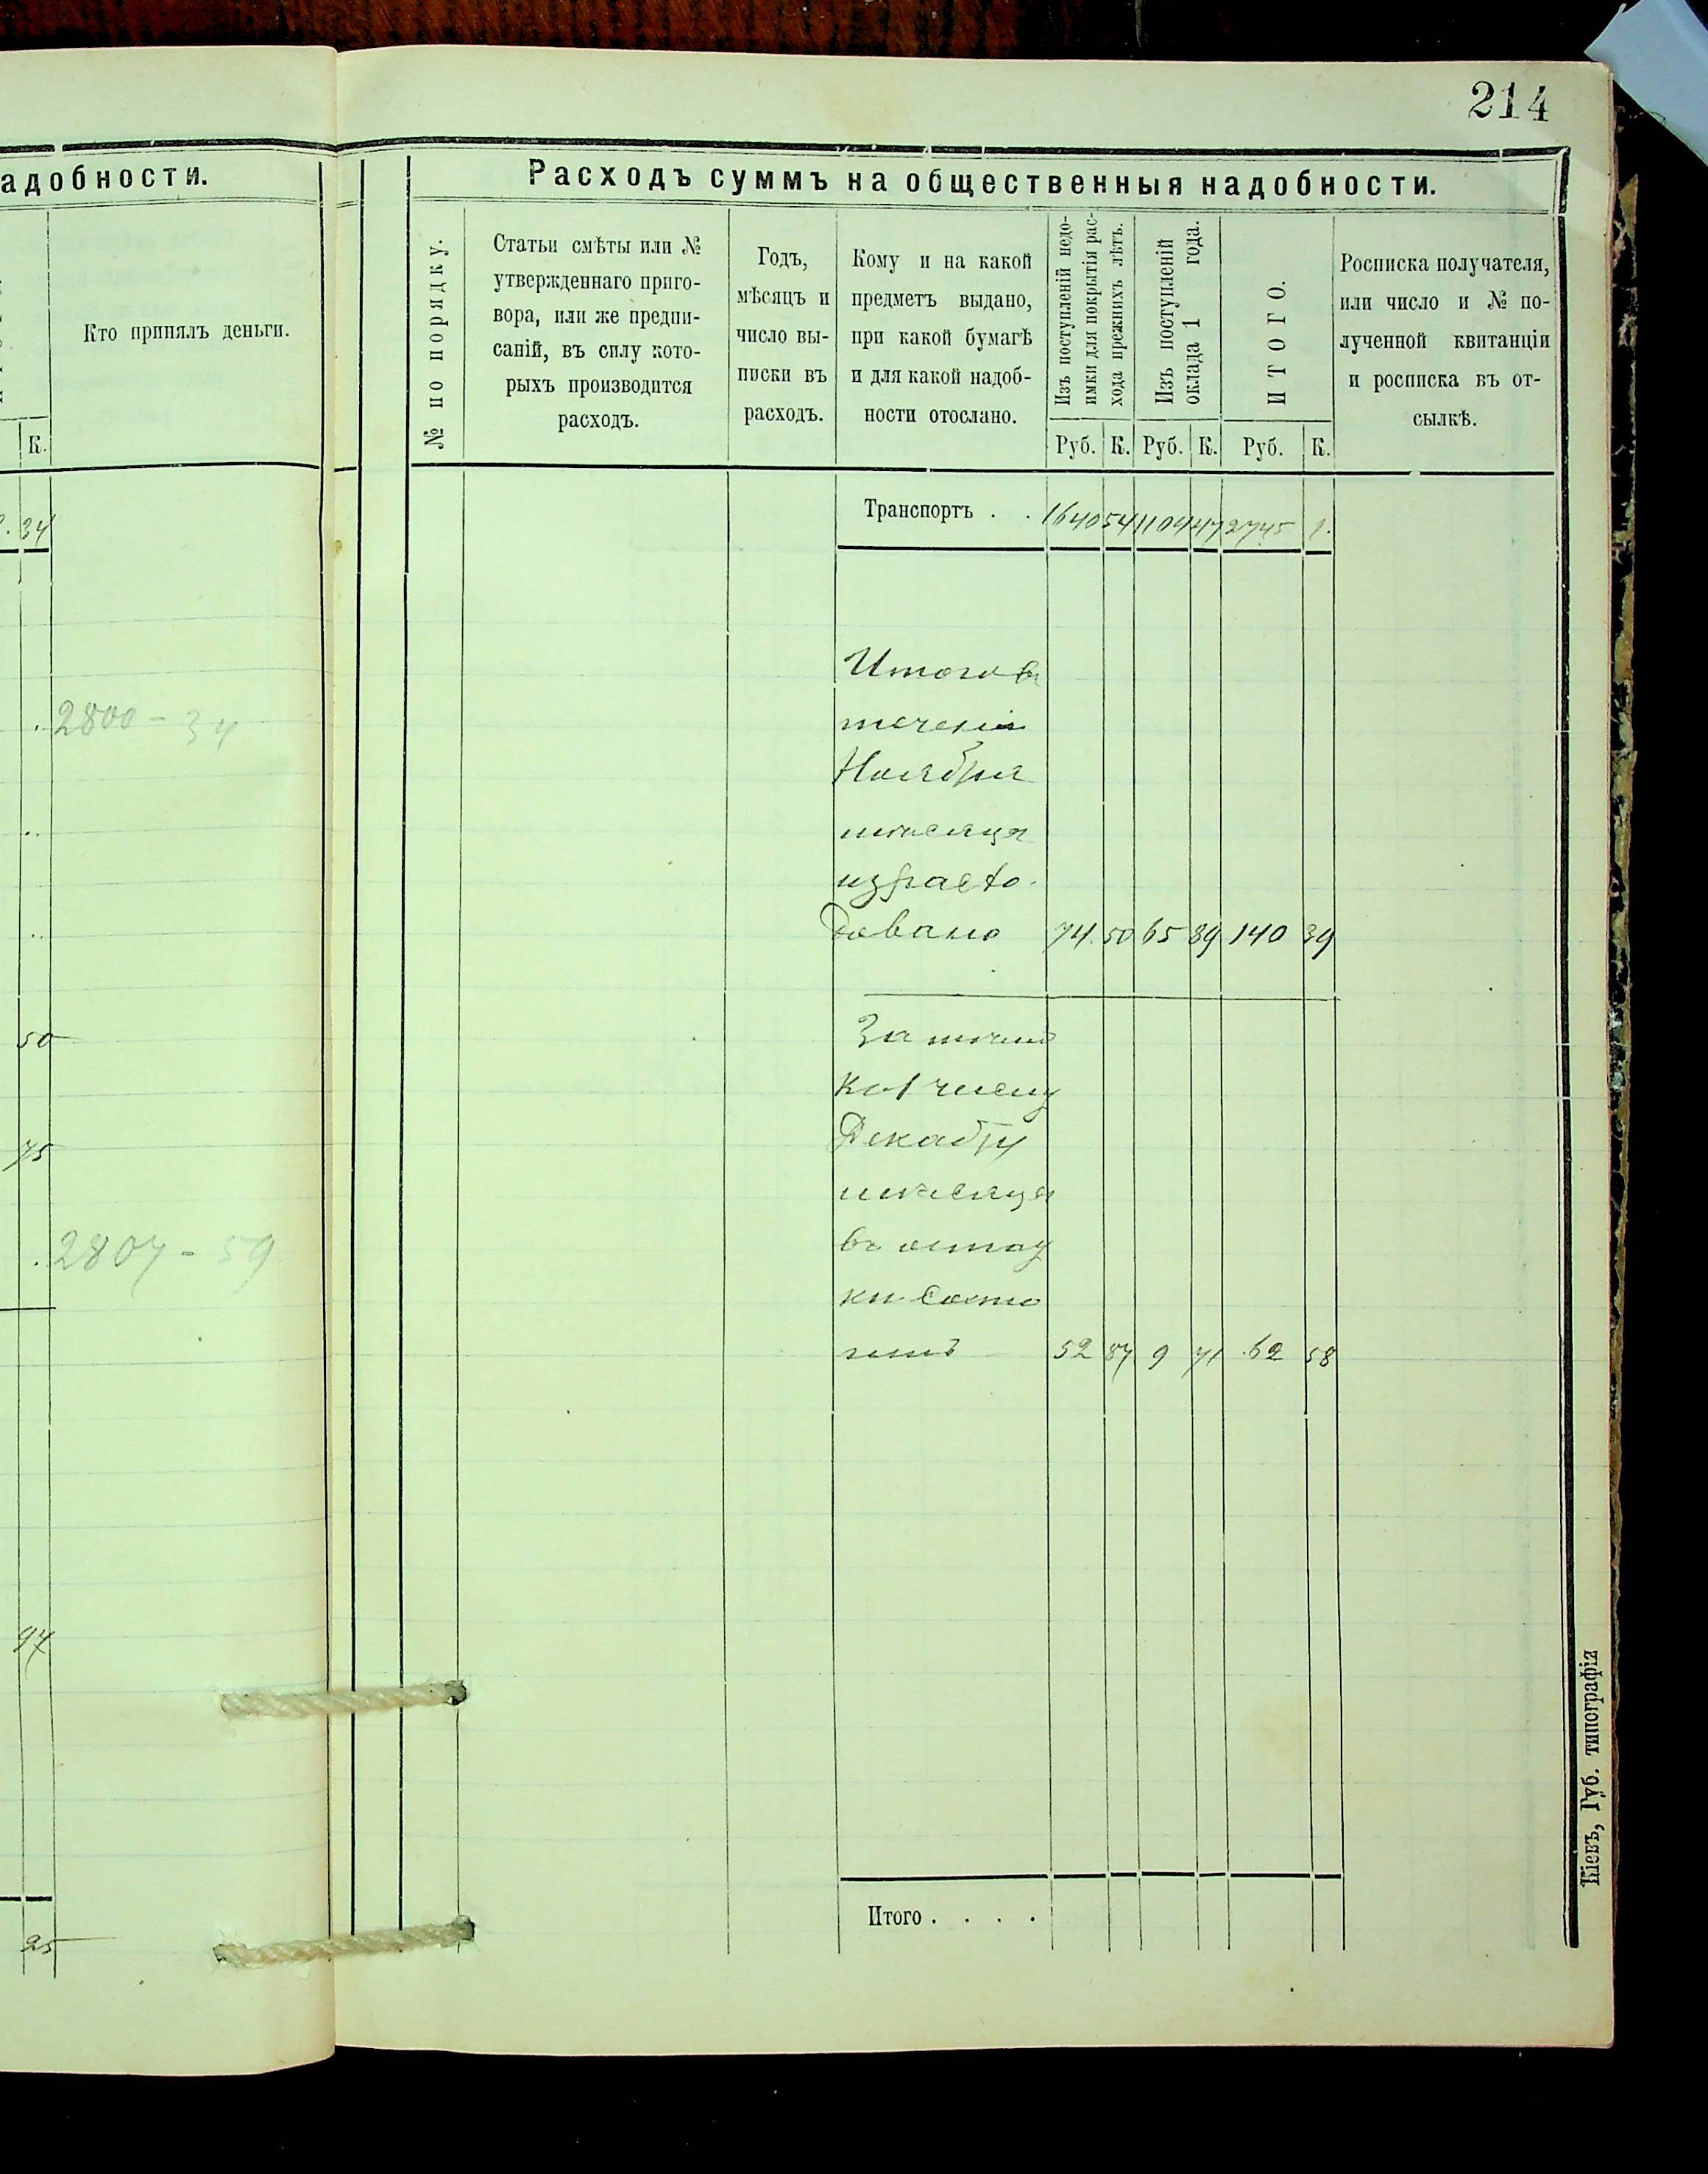 214
адобности.
Кто принялъ деньги.
К.
34
2800 - 34
50
75
2807 - 59
97
25
Расходъ суммъ на общественныя надобности.
№ по порядку.
Статьи смѣты или №
утвержденнаго приго-
вора, или же предпи-
саній, въ силу кото-
рыхъ производится
расходъ.
Годъ,
мѣсяцъ и
число вы-
писки въ
расходъ.
Кому и на какой
предметъ выдано,
при какой бумагѣ
и для какой надоб-
ности отослано.
Изъ поступленій недо-
имки для покрытія рас-
хода прежнихъ лѣтъ.
Изъ поступленій
оклада 1 года.
ИТОГО.
Росписка получателя,
или число и № по-
лученной квитанціи
и росписка въ от-
сылкѣ.
Руб. К. Руб. К. Руб. К.
Транспортъ . . 1640 54 1104 47 2745 1.
Итого въ
теченіи
Ноября
мѣсяца
израсхо-
довано 74 50 65 89 140 39
За тѣмъ
къ 1 числу
Декабря
мѣсяца
въ остат
ки состо
52 87 9 71 62 58
Итого . . . .
Кіевъ, Губ. типографія